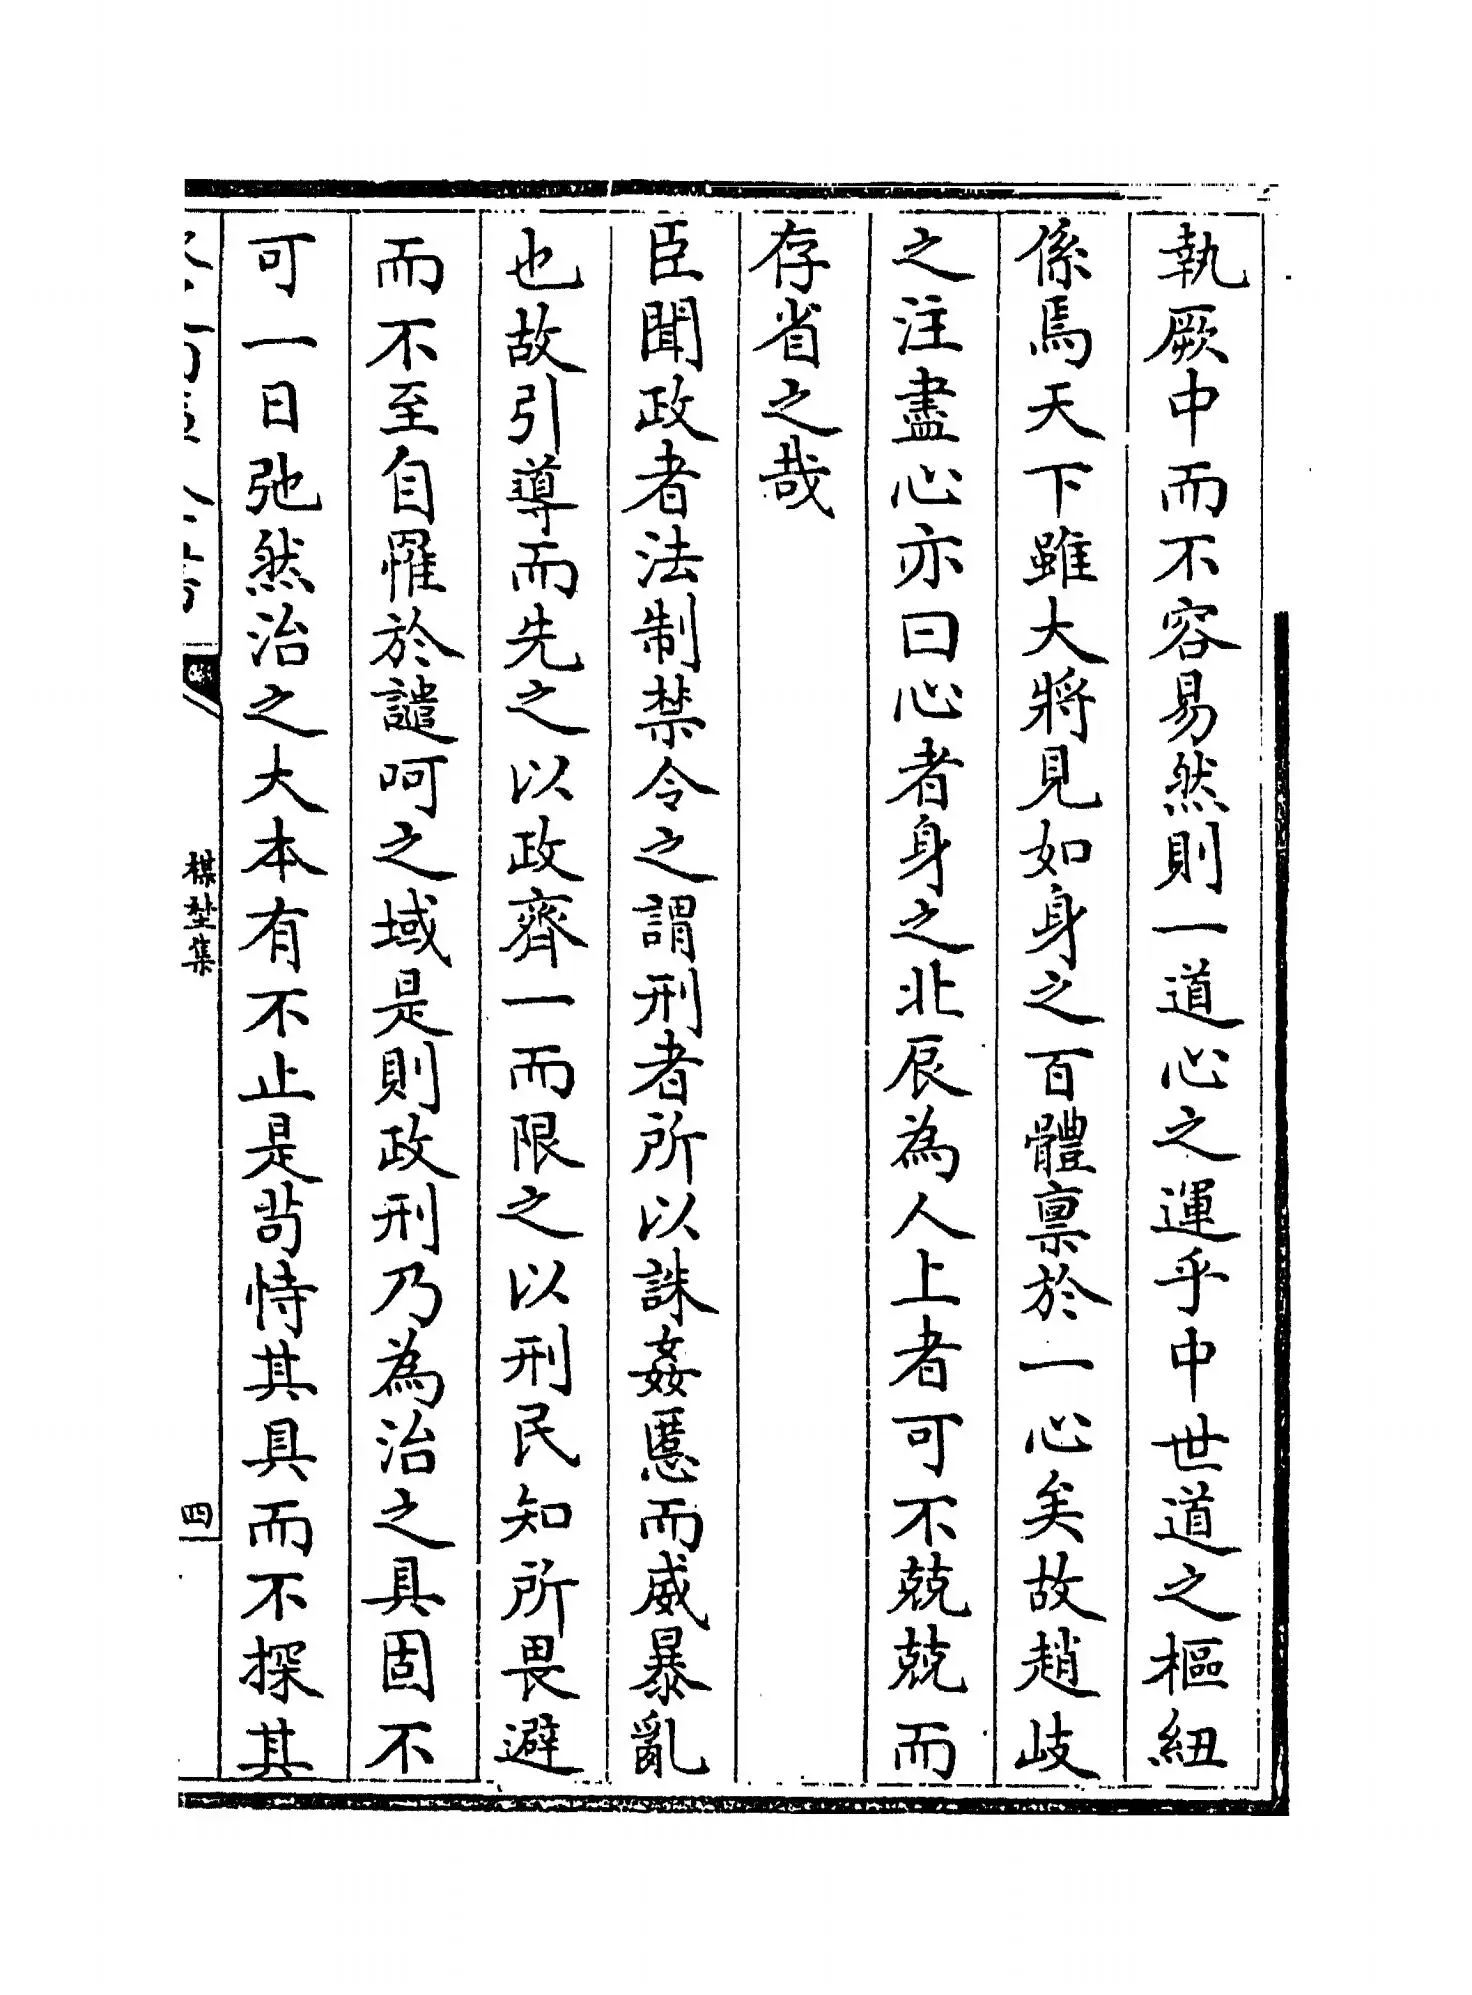 執厥中而不容易然則一道心之運乎中世道之樞紐
係焉天下雖大將見如身之百體禀於一心矣故趙歧
之注盡心亦曰心者身之北辰為人上者可不兢兢而
存省之哉
臣聞政者法制禁令之謂刑者所以誅姦慝而威暴亂
也故引導而先之以政齊一而限之以刑民知所畏避
而不至自罹於譴呵之域是則政刑乃為治之具固不
可一日弛然治之大本有不止是苟恃其具而不探其
楳埜集
四